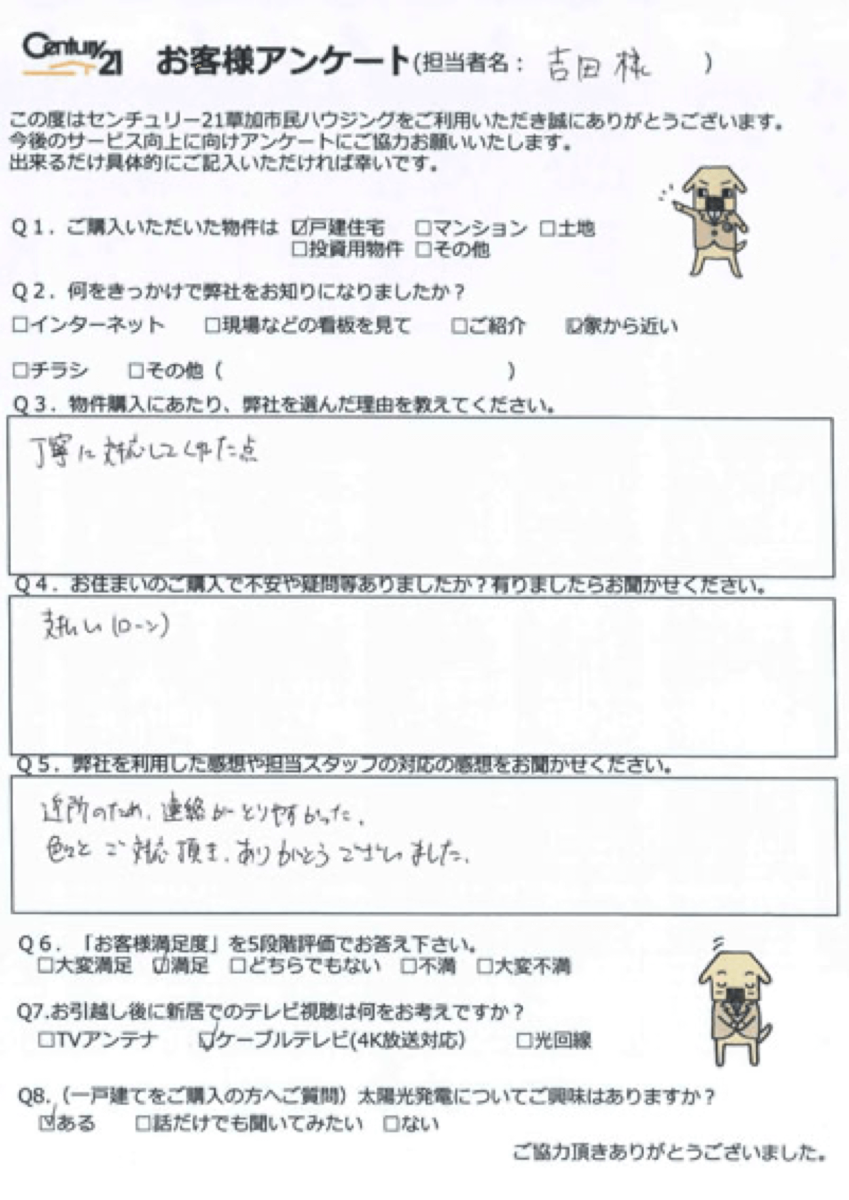 Century 21 お客様アンケート(担当者名： 吉田 様 )
この度はセンチュリー21草加市民ハウジングをご利用いただき誠にありがとうございます。
今後のサービス向上に向けアンケートにご協力お願いいたします。
出来るだけ具体的にご記入いただければ幸いです。
Q1．ご購入いただいた物件は ☑戸建住宅 □マンション □土地
□投資用物件 □その他
Q2．何をきっかけで弊社をお知りになりましたか？
□インターネット □現場などの看板を見て □ご紹介 ☑家から近い
□チラシ □その他（ ）
Q3．物件購入にあたり、弊社を選んだ理由を教えてください。
丁寧に対応してくれた点
Q4．お住まいのご購入で不安や疑問等ありましたか？有りましたらお聞かせください。
支払い(ローン)
Q5．弊社を利用した感想や担当スタッフの対応の感想をお聞かせください。
近所のため、連絡がとりやすかった。
色々とご対応頂き、ありがとうございました。
Q6．「お客様満足度」を5段階評価でお答え下さい。
□大変満足 ☑満足 □どちらでもない □不満 □大変不満
Q7.お引越し後に新居でのテレビ視聴は何をお考えですか？
□TVアンテナ ☑ケーブルテレビ(4K放送対応） □光回線
Q8.（一戸建てをご購入の方へご質問）太陽光発電についてご興味はありますか？
☑ある □話だけでも聞いてみたい □ない
ご協力頂きありがとうございました。